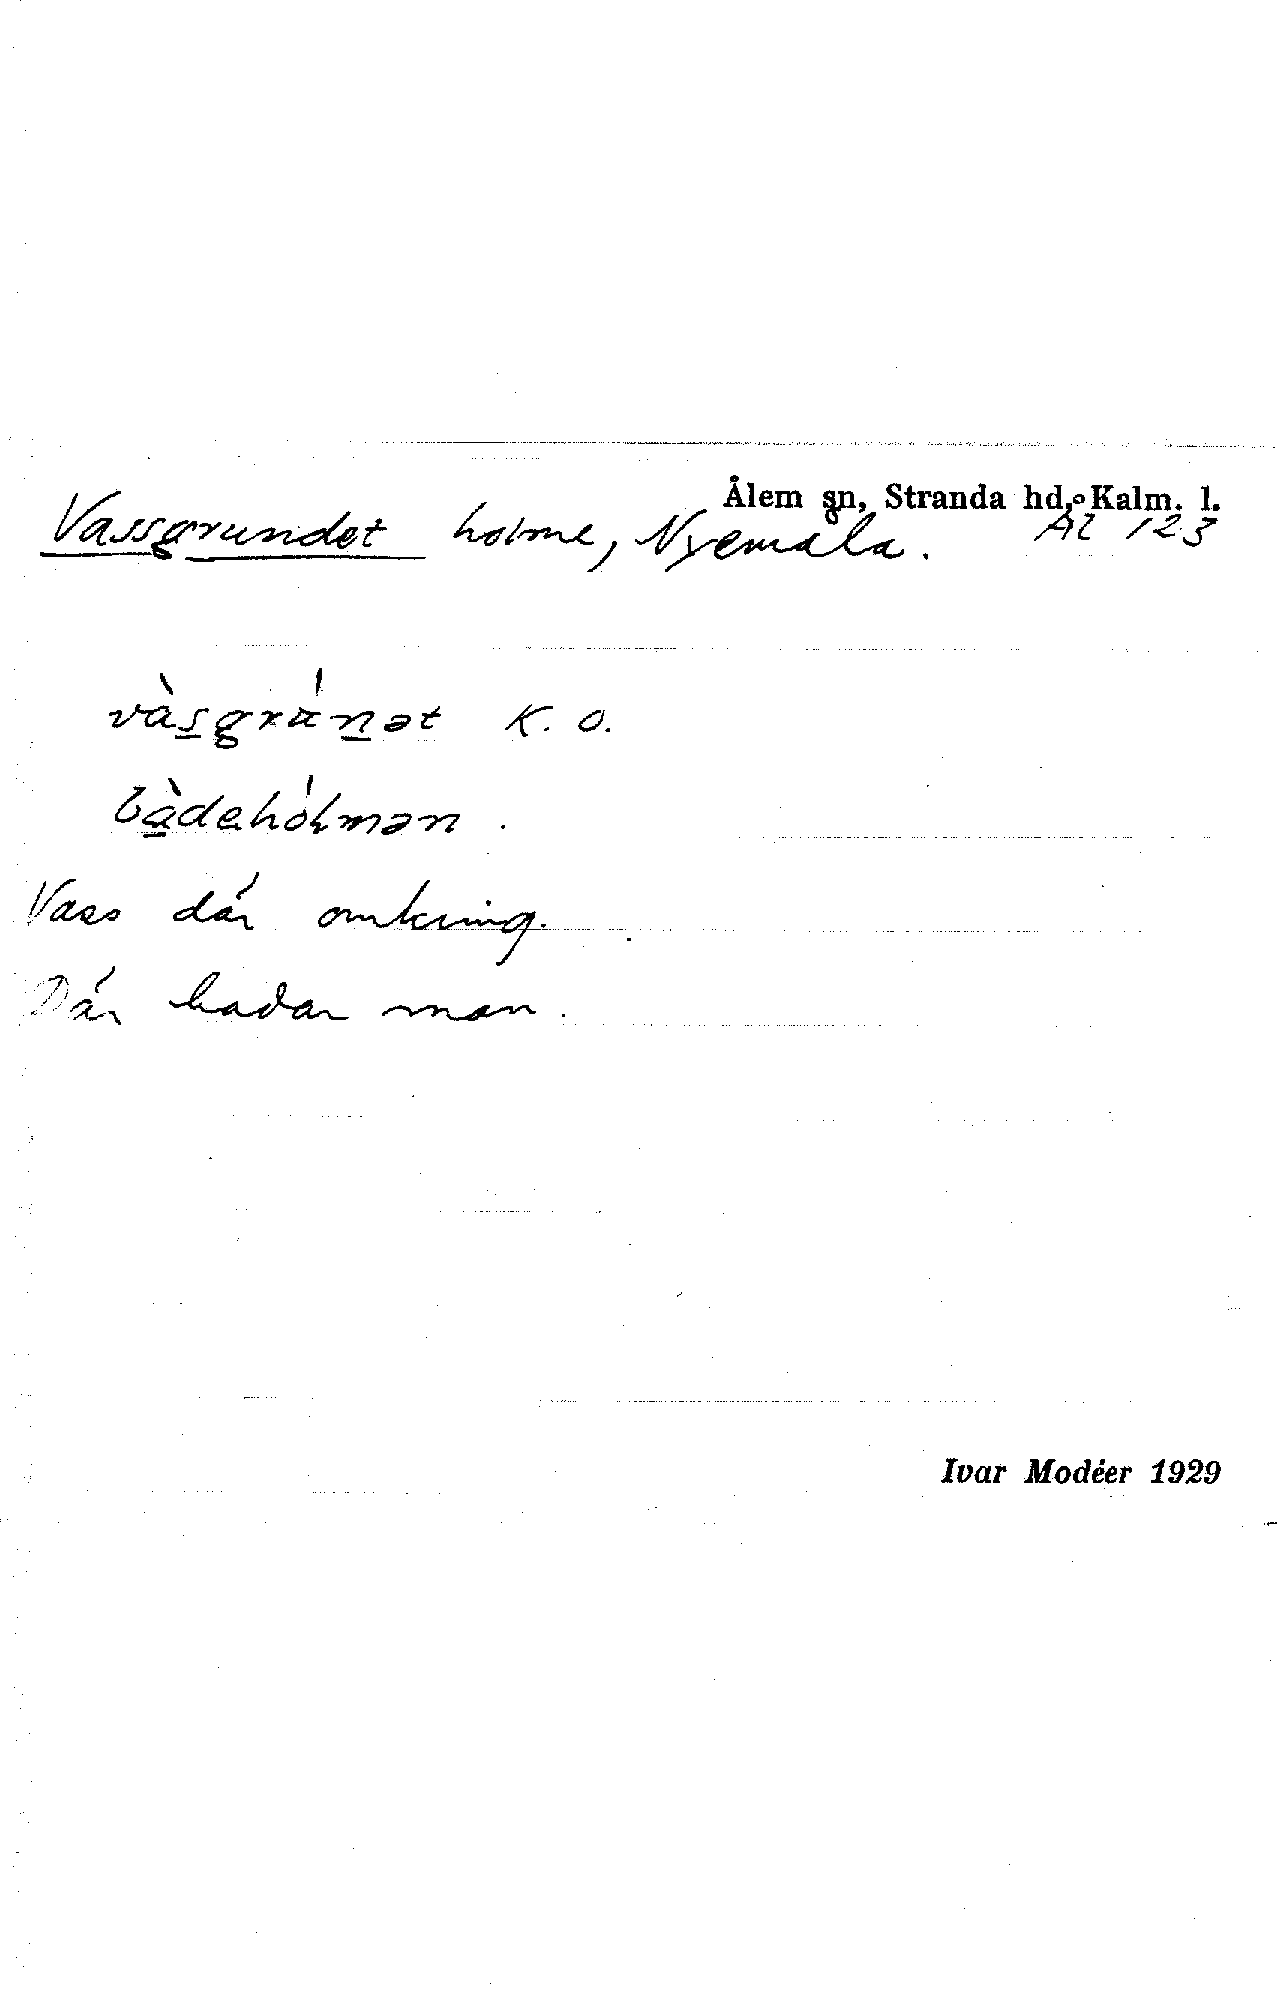 Ålem sn, Stranda hd, Kalm. l.
Vassgrundet holme, Nyemåla. Ål 123
vàsgránət K. O.
bàdehólmən.
Vass där omkring.
Där badar man.
Ivar Modéer 1929